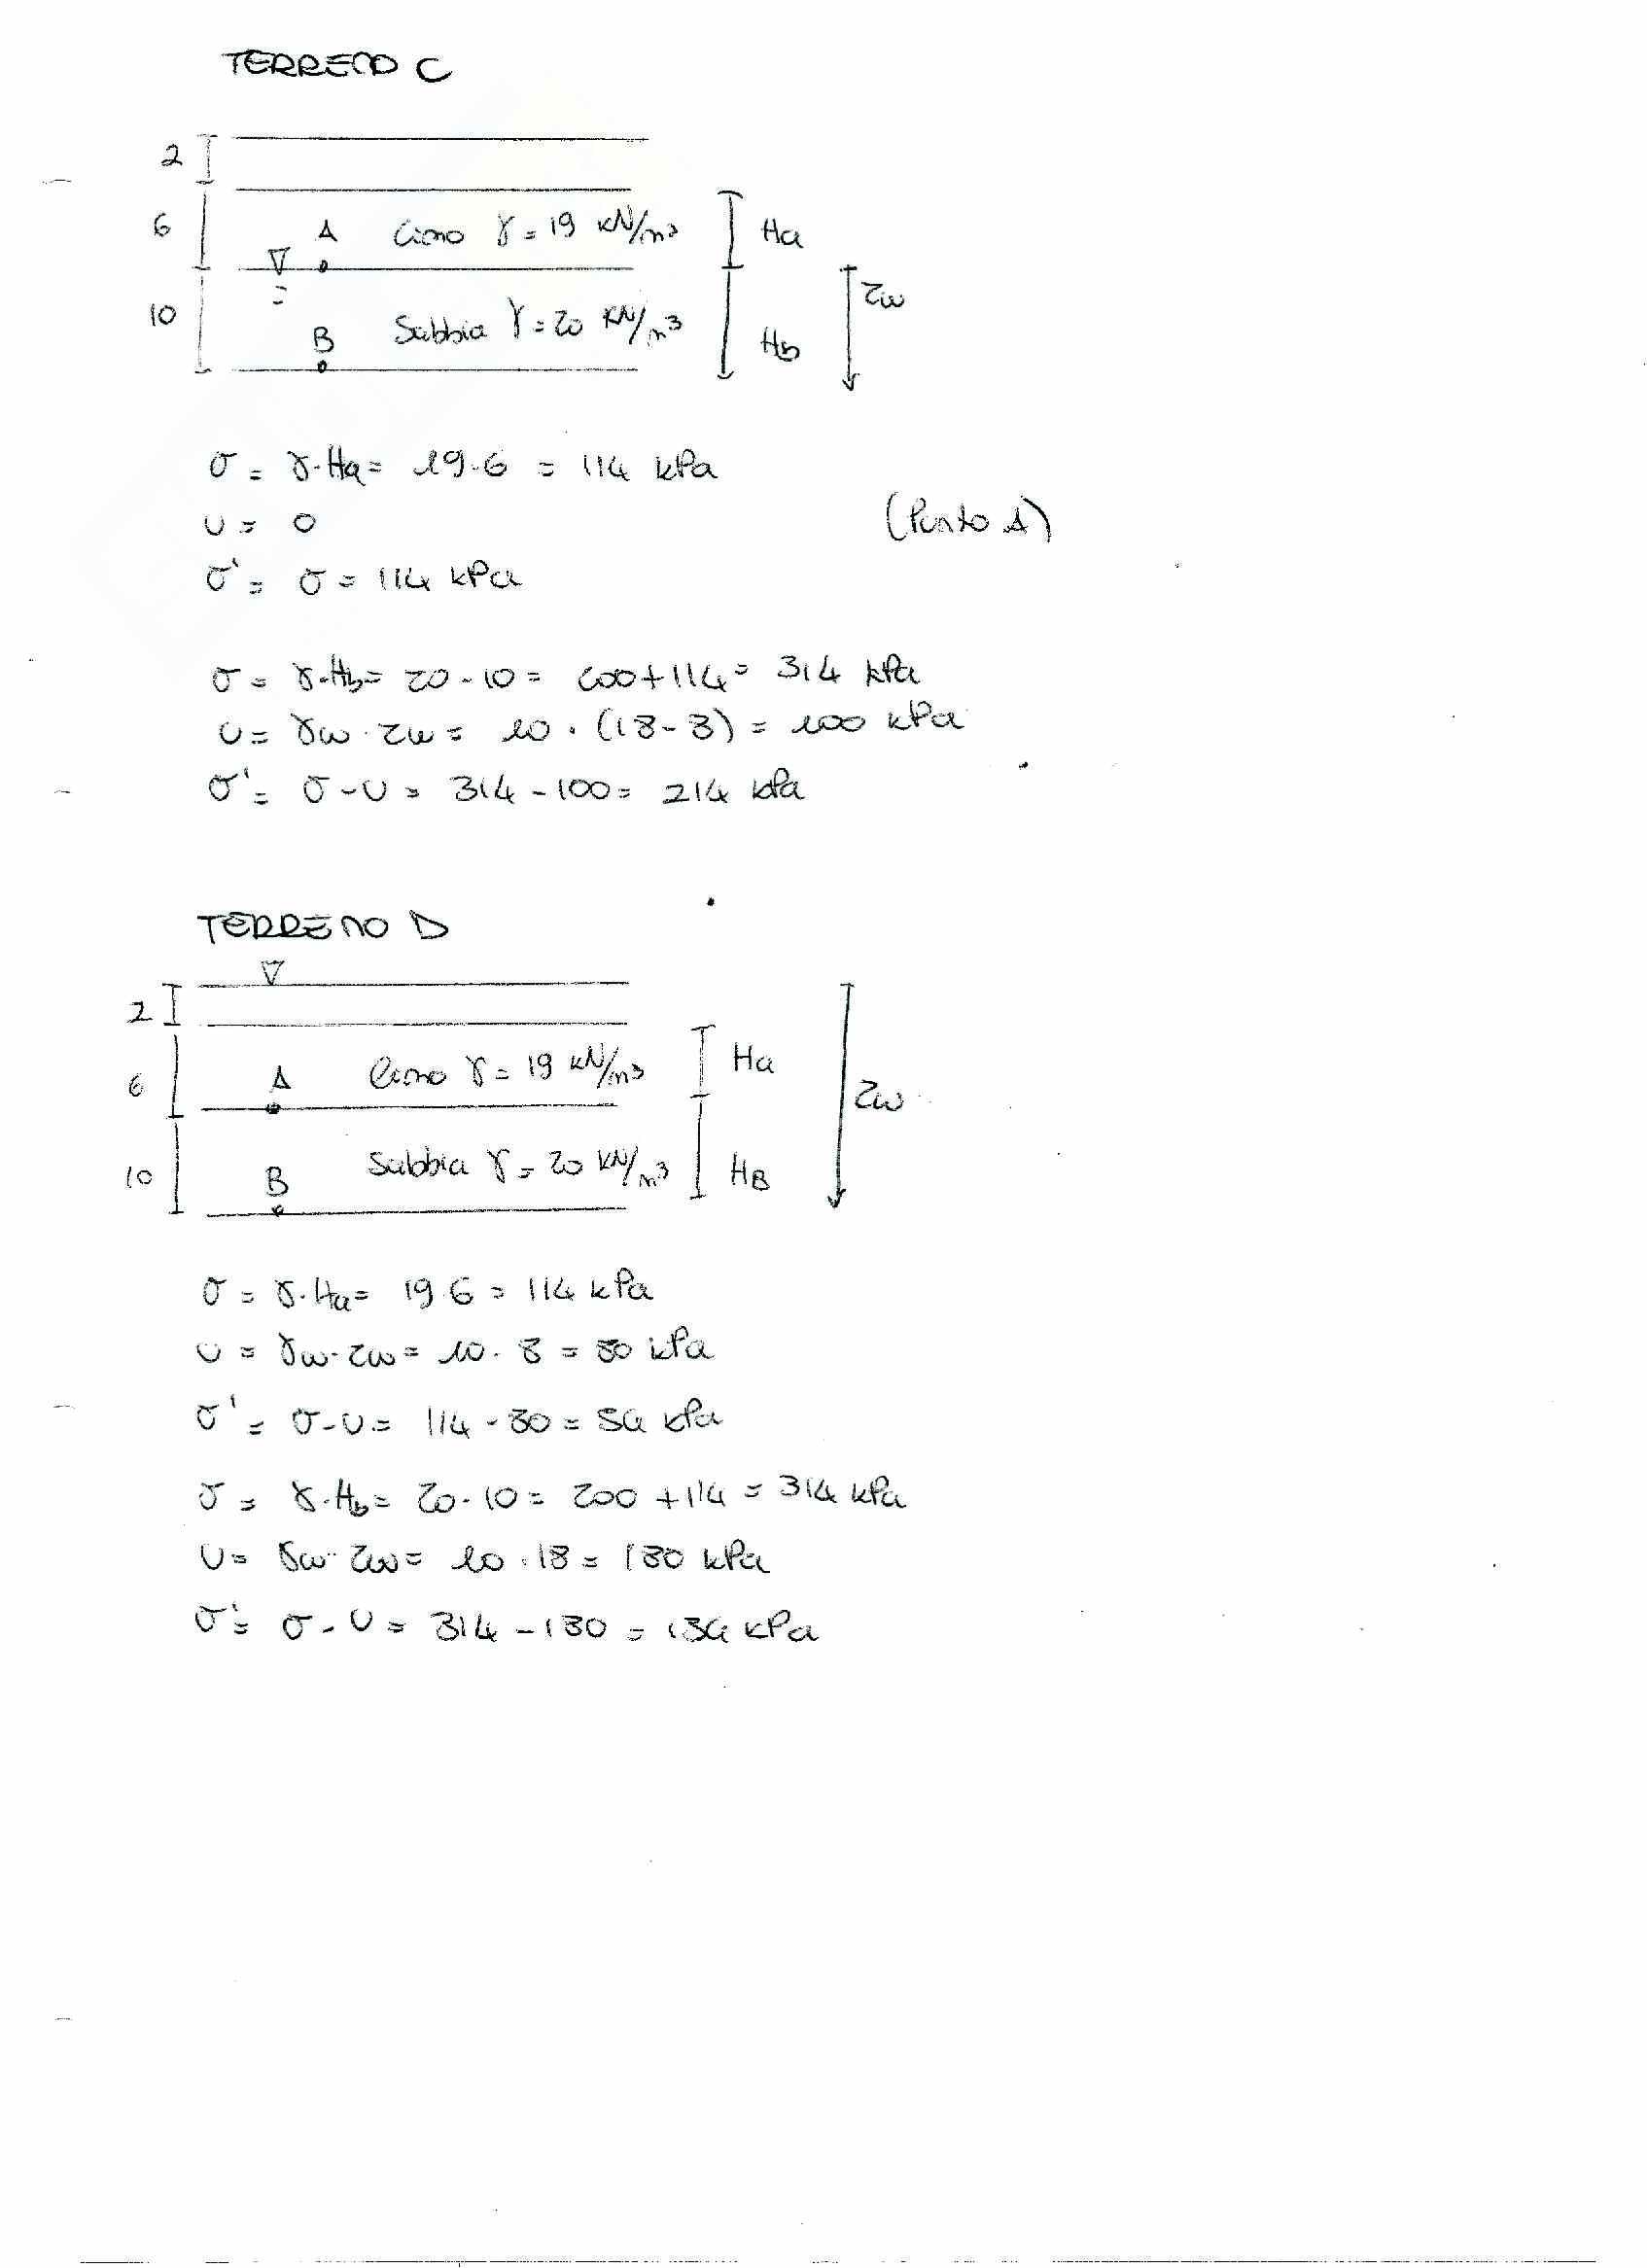 TERRENO C
2
6 A Limo γ = 19 kN/m³ Ha
10 B Sabbia γ = 20 kN/m³ Hb zw
σ = γ·Ha = 19·6 = 114 kPa
u = 0 (Punto A)
σ' = σ = 114 kPa
σ = γ·Hb = 20·10 = 200+114 = 314 kPa
u = γw·zw = 10·(18-8) = 100 kPa
σ' = σ-u = 314-100 = 214 kPa
TERRENO D
2
6 A Limo γ = 19 kN/m³ Ha zw
10 B Sabbia γ = 20 kN/m³ HB
σ = γ·Ha = 19·6 = 114 kPa
u = γw·zw = 10·8 = 80 kPa
σ' = σ-u = 114-80 = 34 kPa
σ = γ·Hb = 20·10 = 200+114 = 314 kPa
u = γw·zw = 10·18 = 180 kPa
σ' = σ-u = 314-180 = 134 kPa